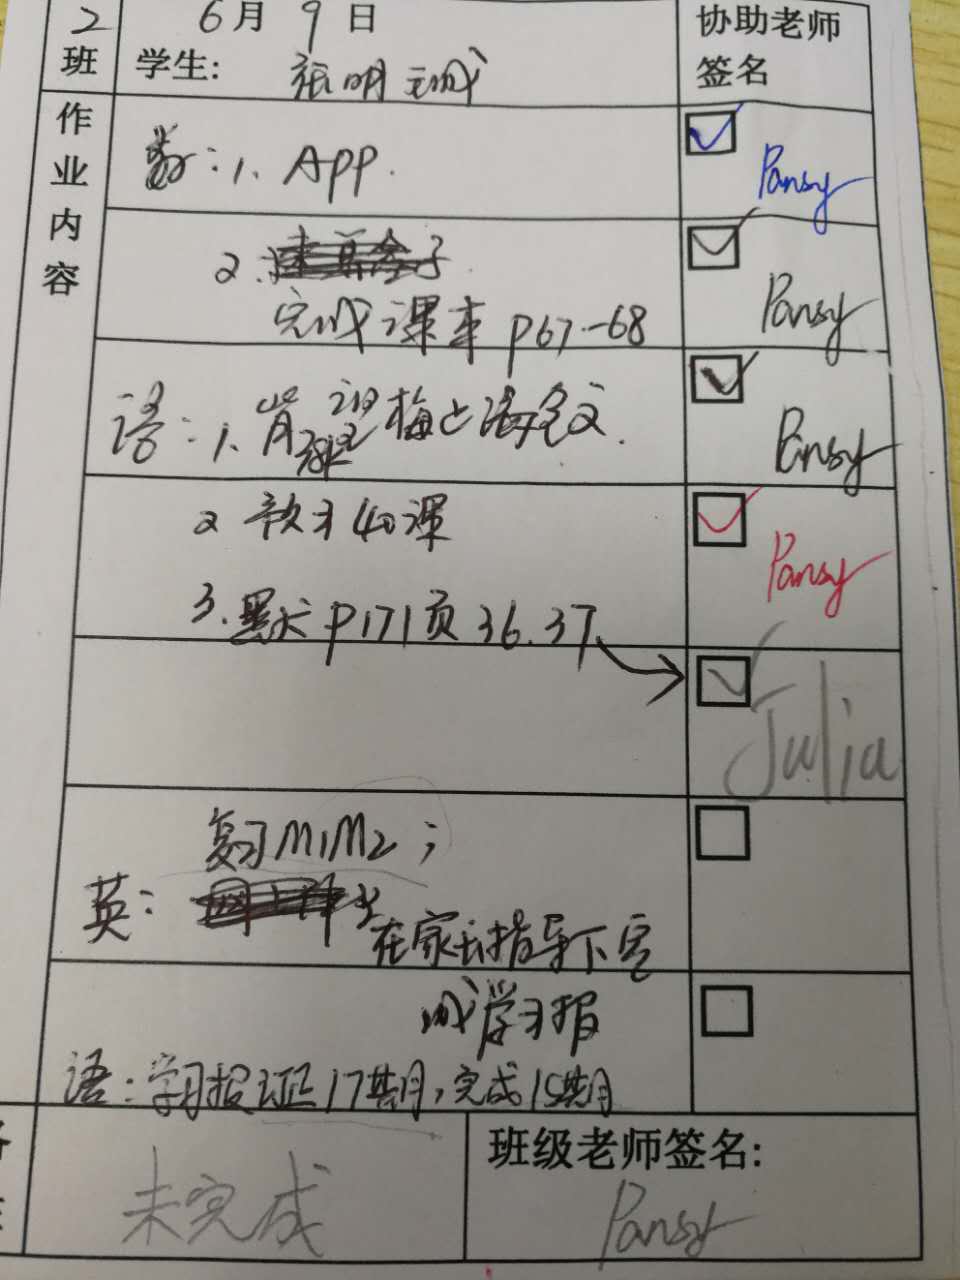 2班 6月9日 协助老师
学生: 张明 签名
作业内容
数:1、APP. Pansy
2.
完成课本P67-68 Pansy
语:1、背 梅 Pansy
2 预习40课 Pansy
3.默 P171页36.37
Julia
复习M1M2;
英:
在家长指导下完
成学习报
语:学习报订正17期,完成15期
未完成 班级老师签名:
Pansy